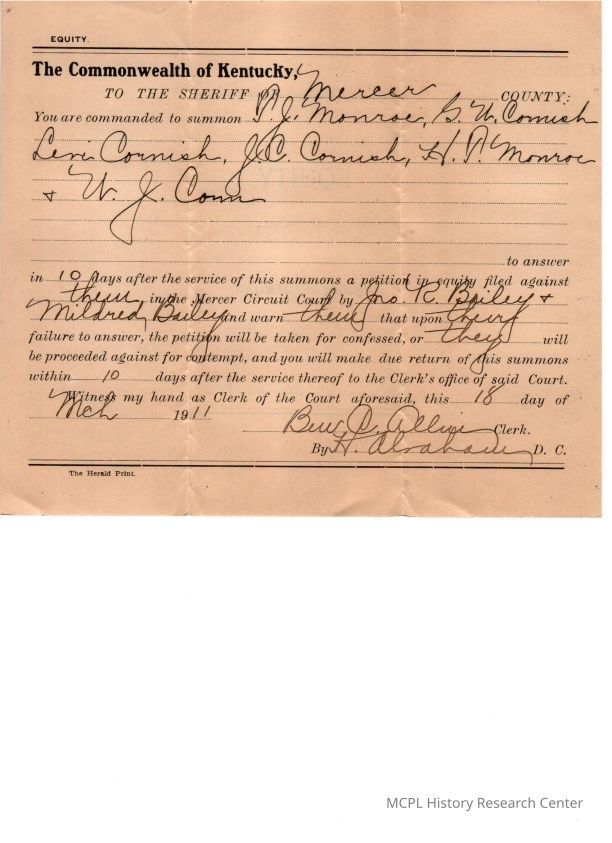 EQUITY.
The Commonwealth of Kentucky,
TO THE SHERIFF OF Mercer COUNTY:
You are commanded to summon P. J. Monroe, G. W. Cornish
Levi Cornish, J. C. Cornish, H. P. Monroe
& W. J. Conn
to answer
in 10 days after the service of this summons a petition in equity filed against
them in the Mercer Circuit Court by Jno. K. Bailey &
Mildred Bailey and warn them that upon their
failure to answer, the petition will be taken for confessed, or they will
be proceeded against for contempt, and you will make due return of this summons
within 10 days after the service thereof to the Clerk's office of said Court.
Witness my hand as Clerk of the Court aforesaid, this 18 day of
Mch 1911
Ben C. Allin Clerk.
By H. Abraham D. C.
The Herald Print.
MCPL History Research Center